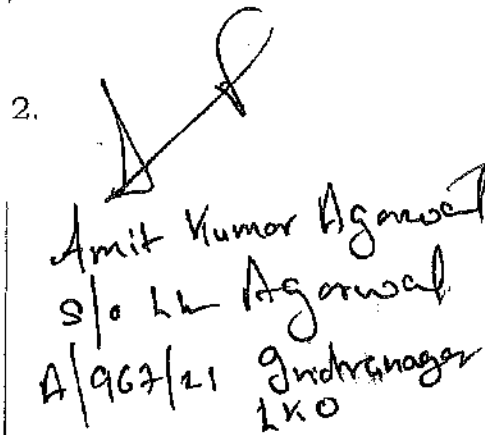 2.
Amit Kumar Agarwal
S/o Agarwal
A/967/21 Indiranagar
LKO